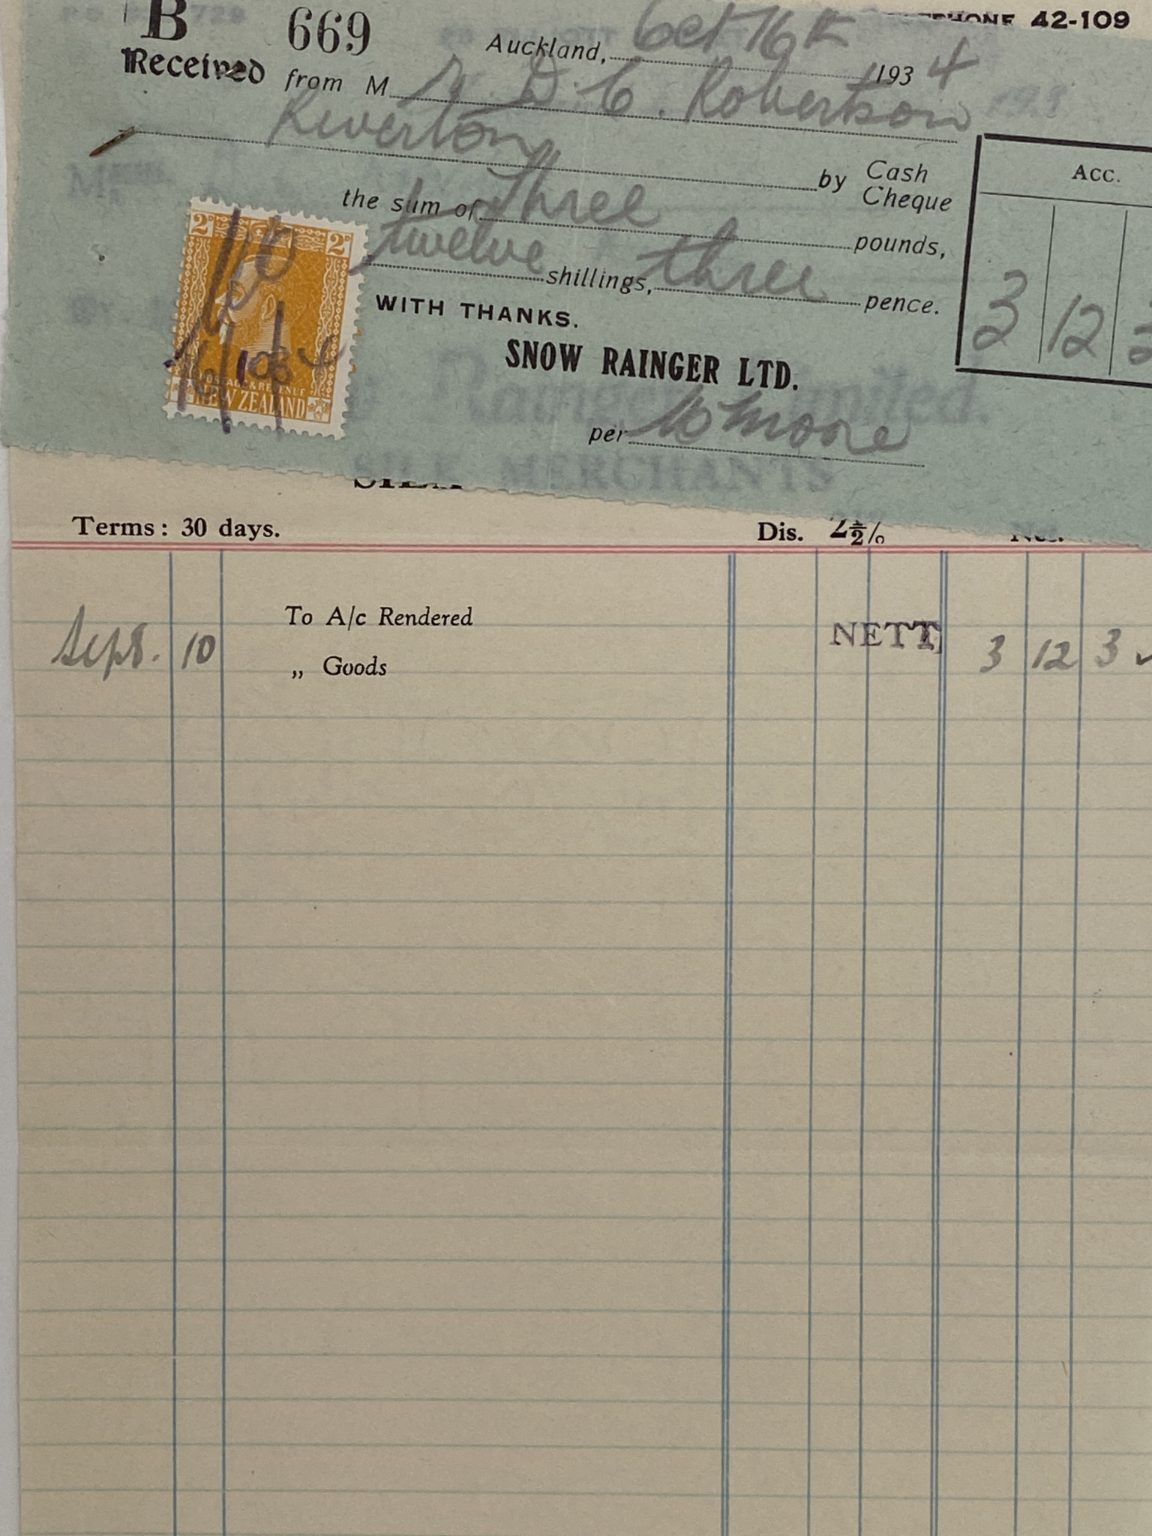 B 669
TELEPHONE 42-109
Auckland, Oct 16th 1934
Received from M r D. C. Robertson
Riverton
by Cash
Cheque
the sum of Three pounds,
twelve shillings, three pence.
Acc.
3 12
WITH THANKS.
SNOW RAINGER LTD.
per Moore
2D 2D
POSTAGE & REVENUE
NEW ZEALAND
Rainger Limited.
SILK MERCHANTS
Terms: 30 days. Dis. 2½% Net.
To A/c Rendered
Sept. 10 „ Goods NETT 3 12 3